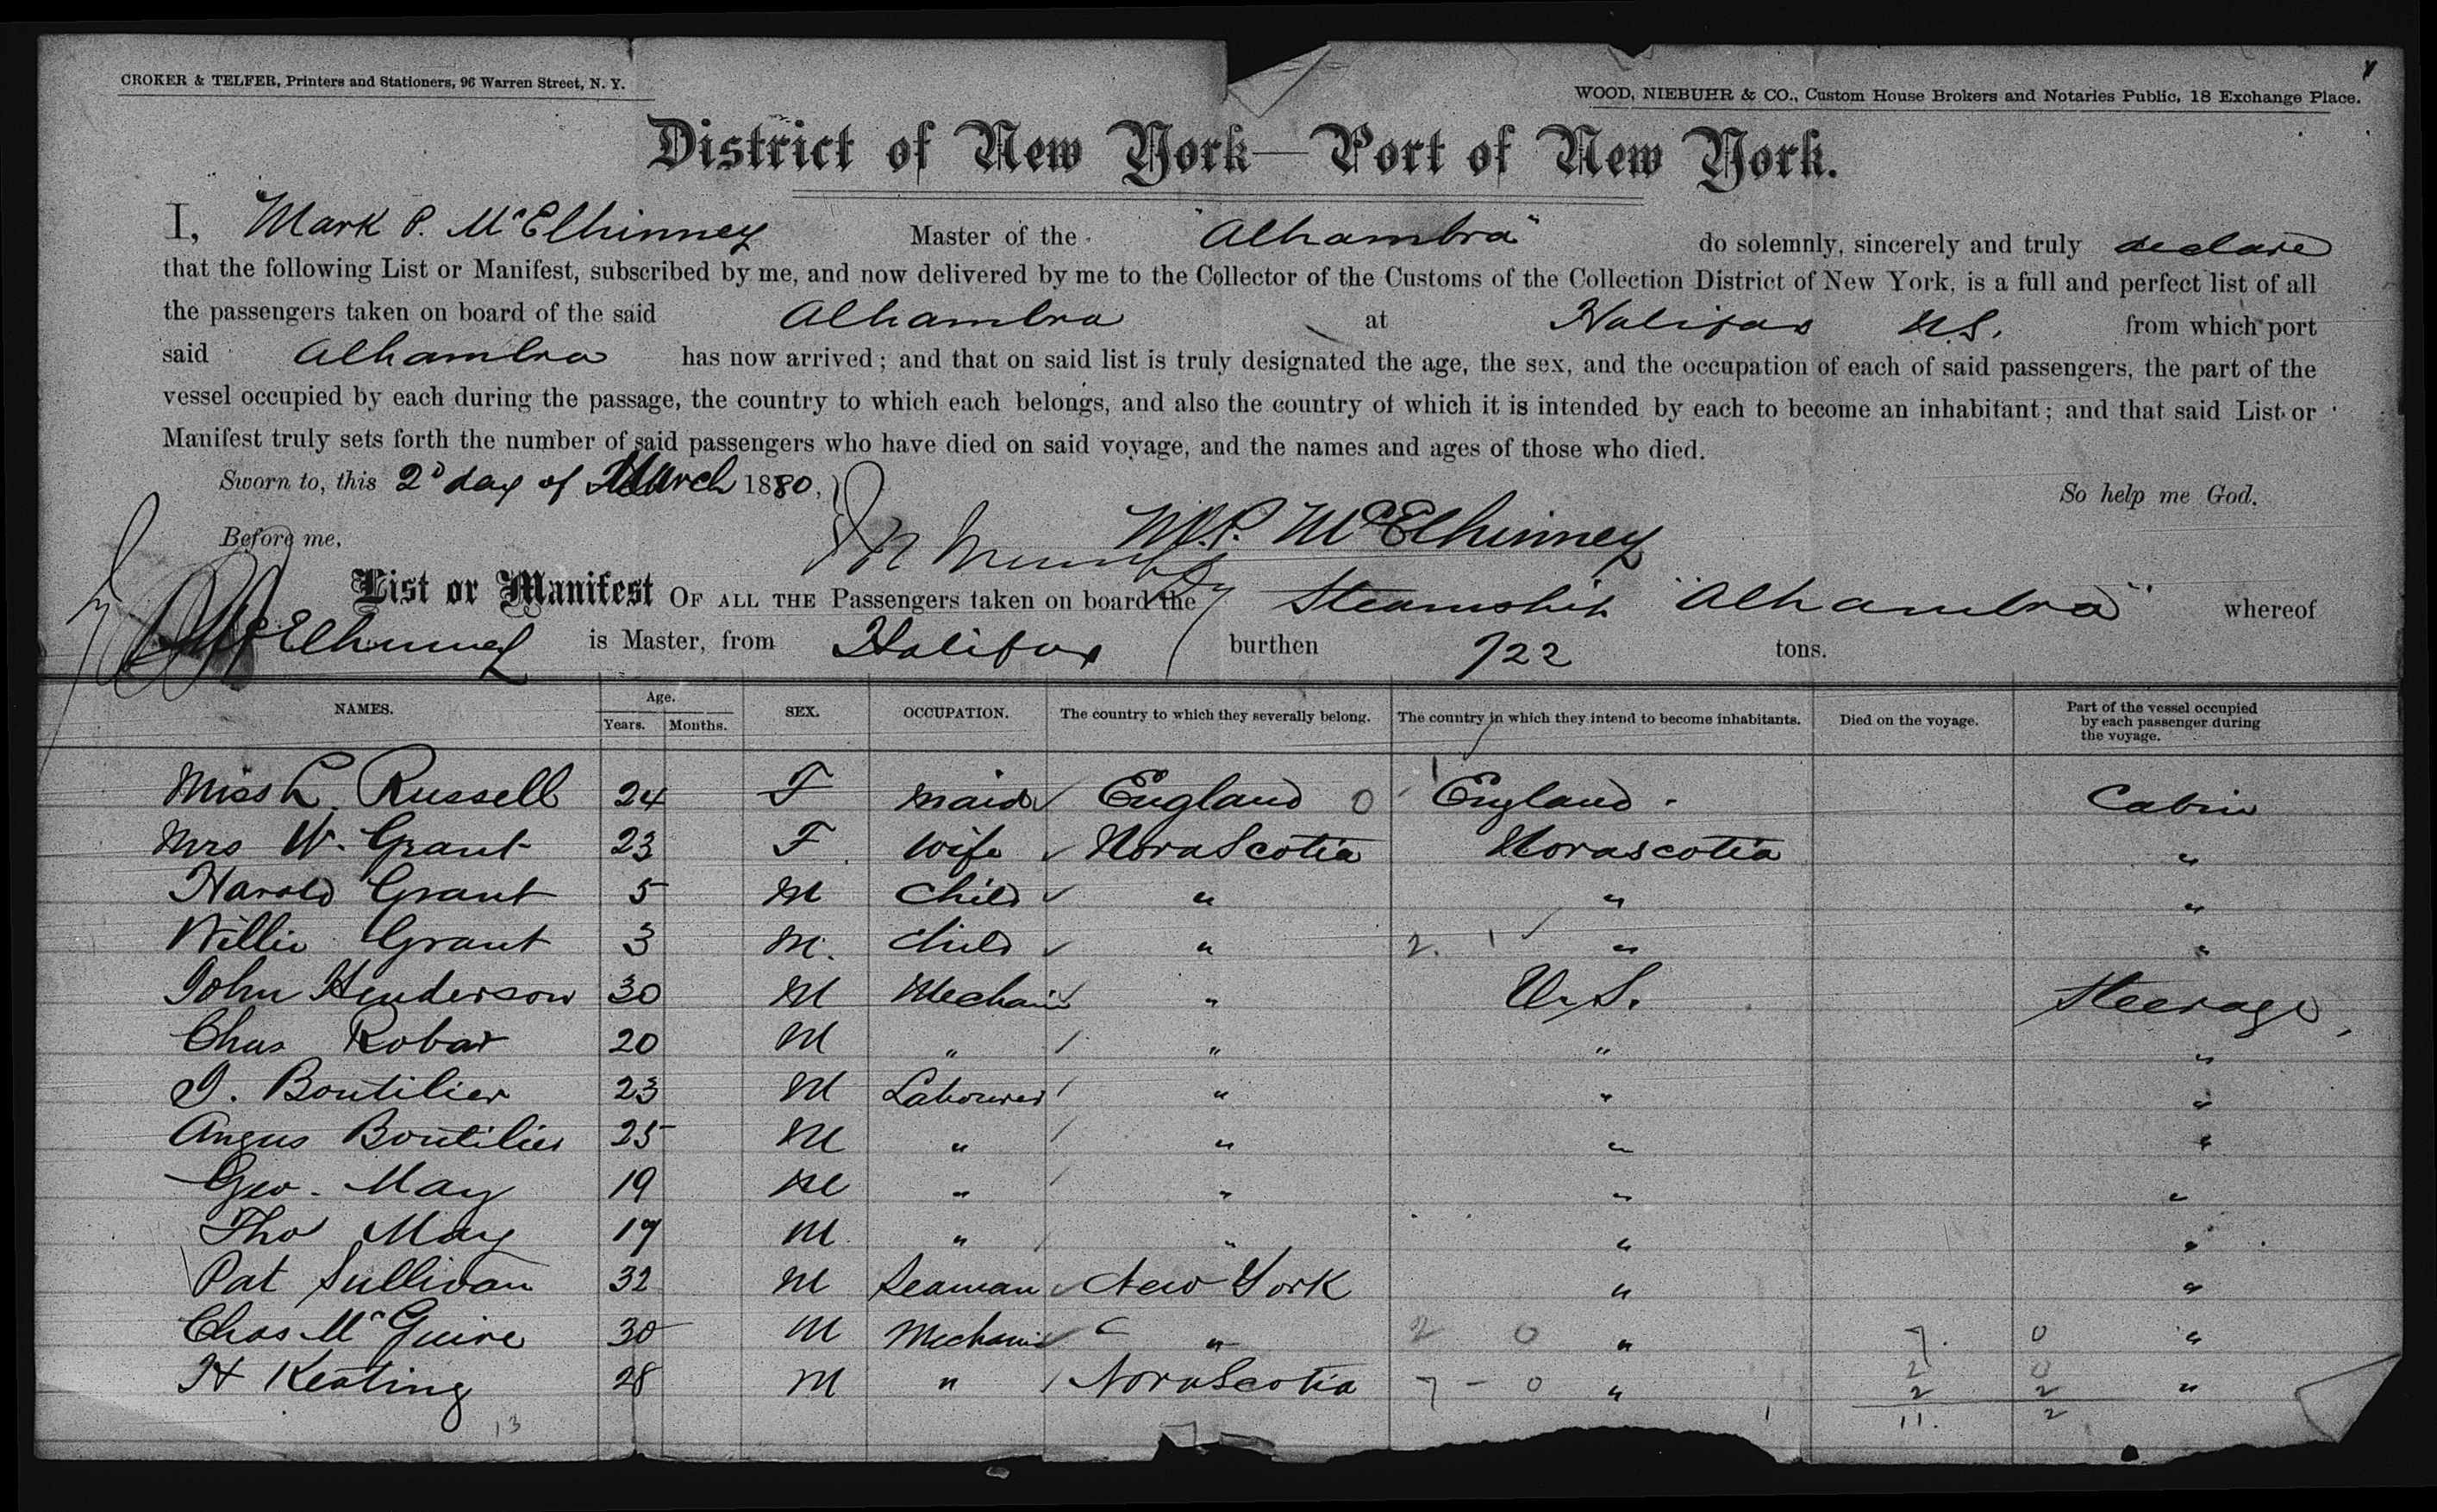 CROKER & TELFER, Printers and Stationers, 96 Warren Street, N. Y.
WOOD, NIEBUHR & CO., Custom House Brokers and Notaries Public, 18 Exchange Place.
District of New York—Port of New York.
I, Mark P. McElhinney Master of the "Alhambra" do solemnly, sincerely and truly declare
that the following List or Manifest, subscribed by me, and now delivered by me to the Collector of the Customs of the Collection District of New York, is a full and perfect list of all
the passengers taken on board of the said Alhambra at Halifax N.S. from which port
said Alhambra has now arrived; and that on said list is truly designated the age, the sex, and the occupation of each of said passengers, the part of the
vessel occupied by each during the passage, the country to which each belongs, and also the country of which it is intended by each to become an inhabitant; and that said List or
Manifest truly sets forth the number of said passengers who have died on said voyage, and the names and ages of those who died.
Sworn to, this 2d day of March 1880, So help me God.
Before me, M.P. McElhinney
List or Manifest OF ALL THE Passengers taken on board the Steamship "Alhambra" whereof
McElhinney is Master, from Halifax burthen 722 tons.
NAMES. Age. Years. Months. SEX. OCCUPATION. The country to which they severally belong. The country in which they intend to become inhabitants. Died on the voyage. Part of the vessel occupied by each passenger during the voyage.
Miss L. Russell 24 F maid England 0 England Cabin
Mrs W. Grant 23 F wife Nova Scotia Novascotia "
Harold Grant 5 M Child " " "
Willie Grant 3 M. child " 2. " "
John Henderson 30 M Mechanic " U.S. Steerage
Chas Robar 20 M " " " "
J. Boutilier 23 M Labourer " " "
Angus Boutilier 25 M " " " "
Geo. May 19 M " " " "
Tho May 17 M " " " "
Pat Sullivan 32 M Seaman New York " "
Chas McGuire 30 M Mechanic " 2 0 " 7. 0 "
H Keating 28 M " Nova Scotia 7 - 0 " 2 2 "
13 11. 2